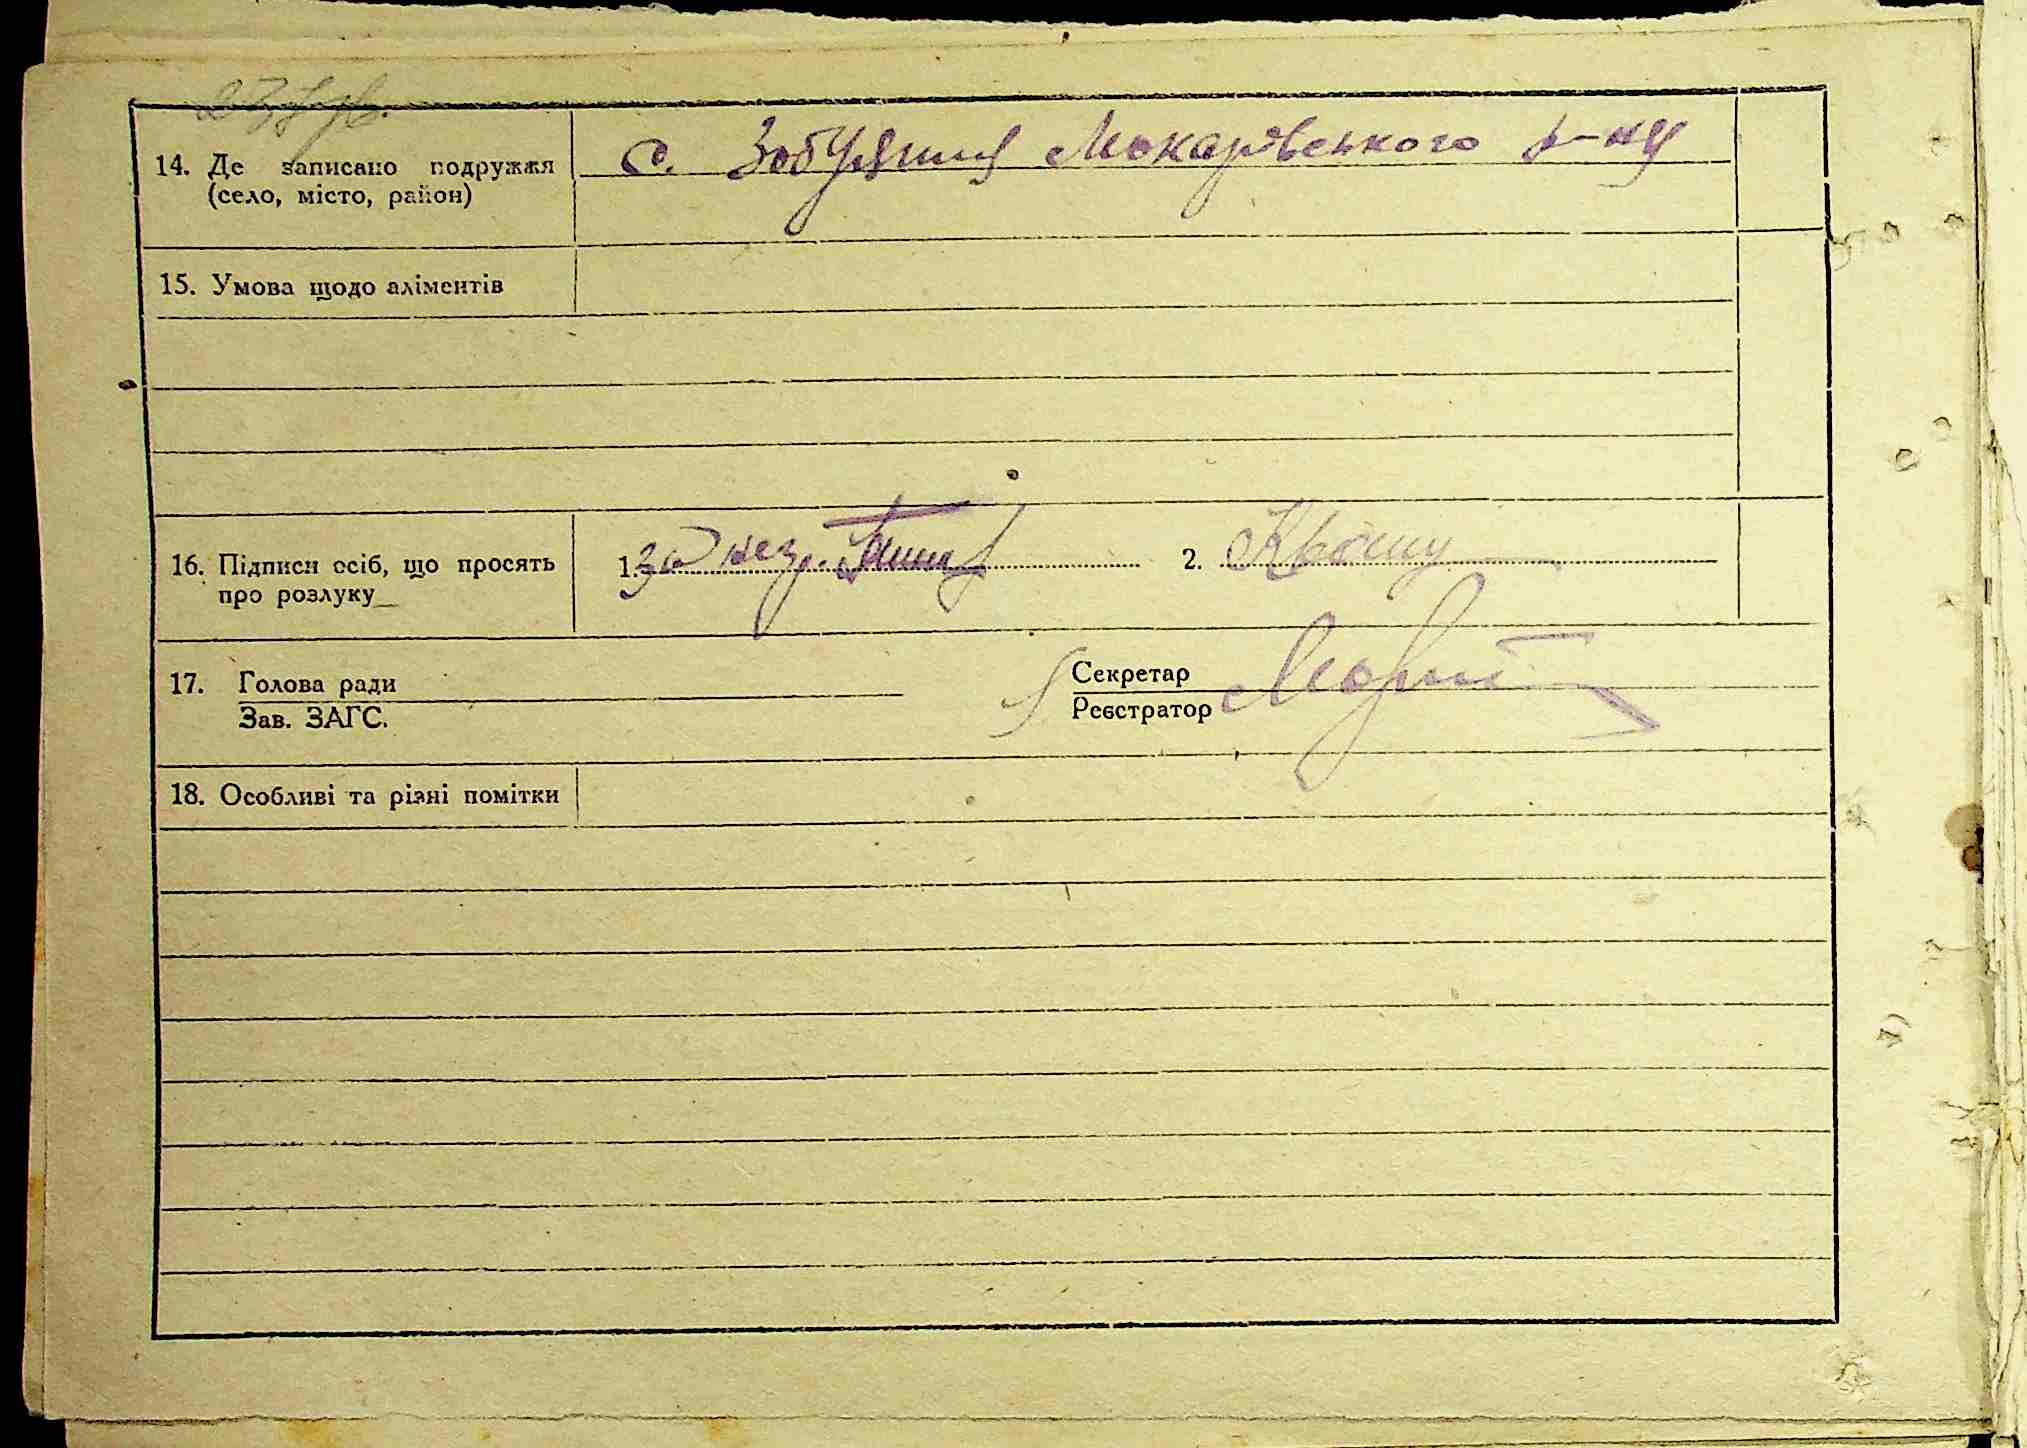 14. Де записано подружжя
(село, місто, район)
с. Забуяння Макарівського р-ну
15. Умова щодо аліментів
16. Підписи осіб, що просять
про розлуку
1. за незр.
2.
17. Голова ради
Зав. ЗАГС.
Секретар
Реєстратор
18. Особливі та різні помітки